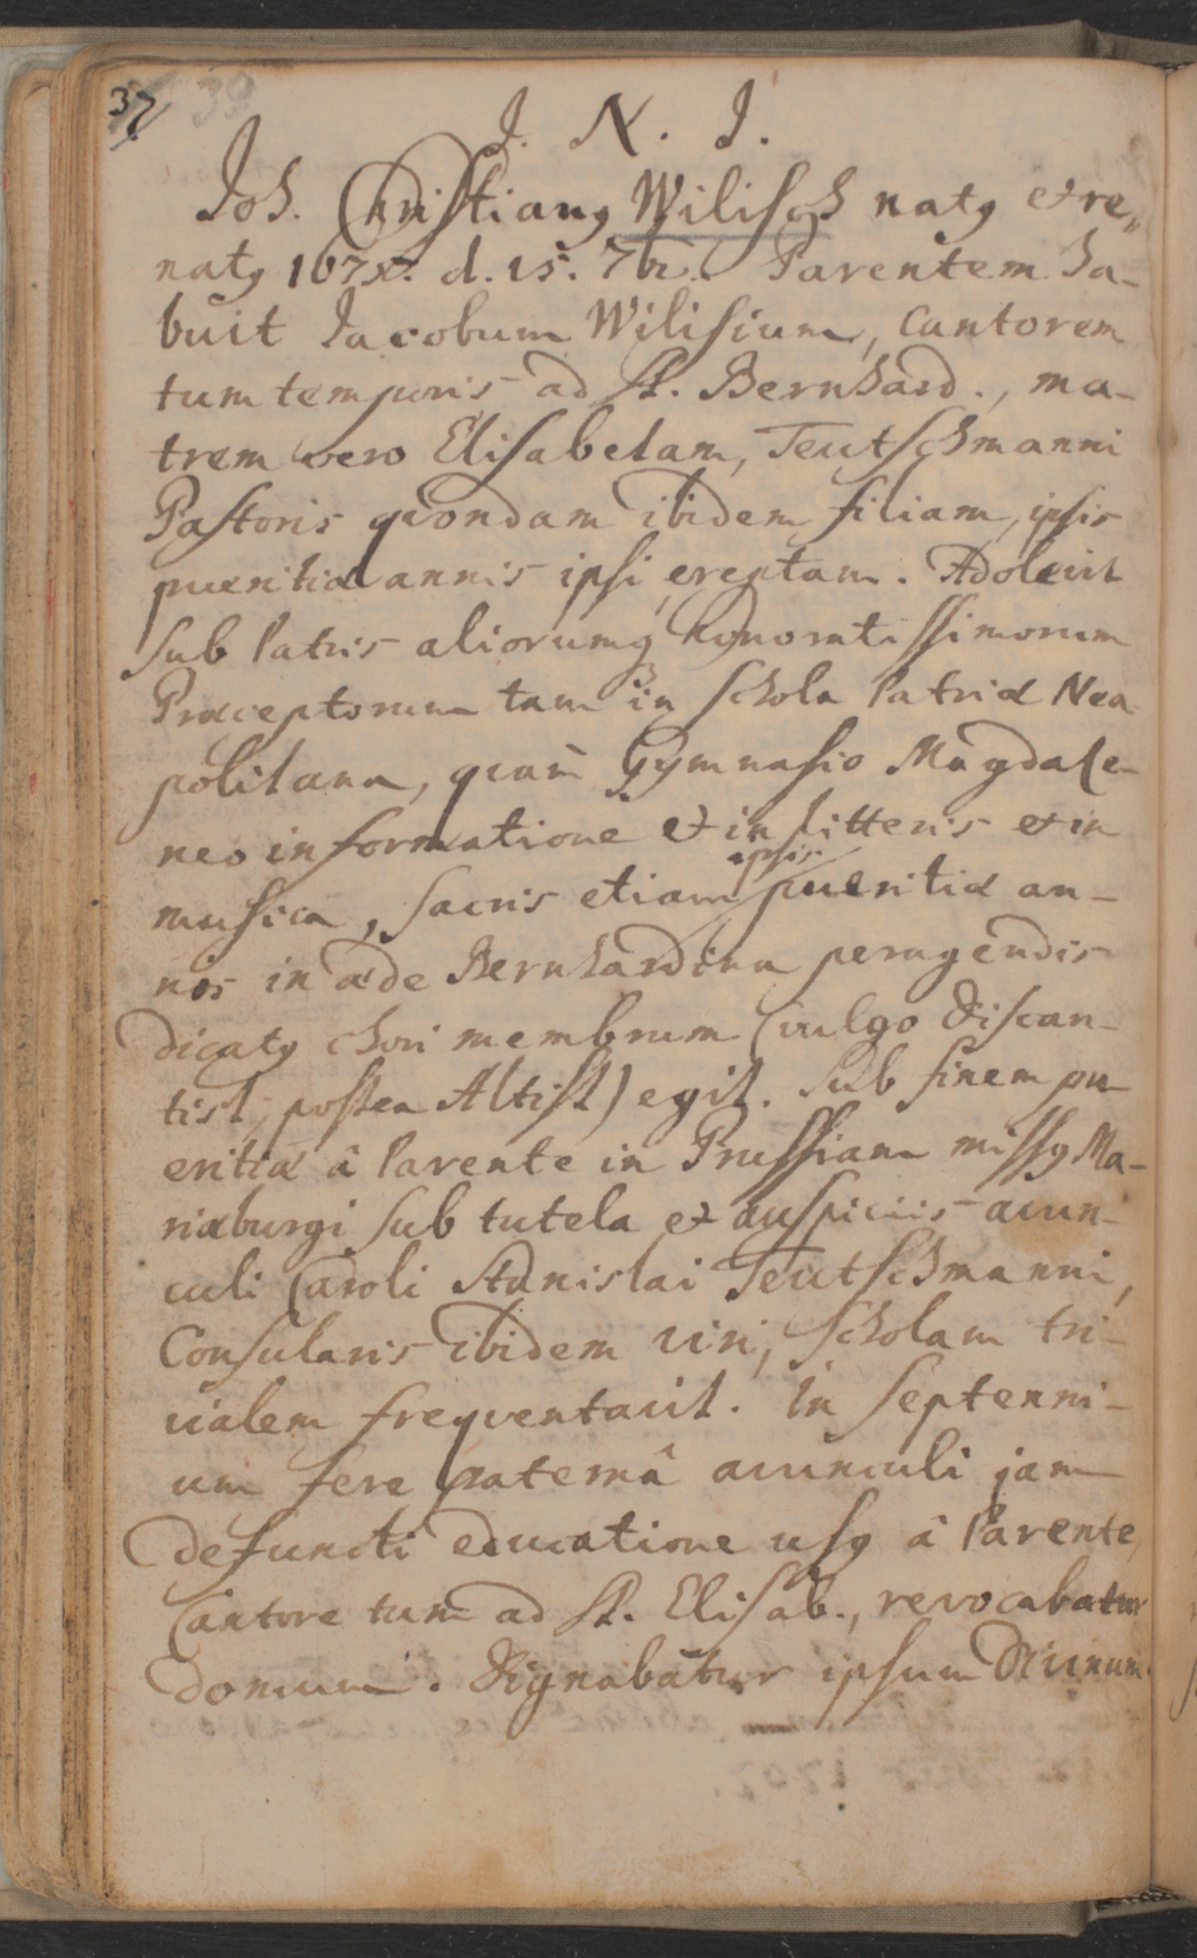 37 39
J. N. J.
Joh. Christianꝰ Wilisch natꝰ et re„
natꝰ d. 15. 7br. Parentem ha-
buit Jacobum Wilisium, Cantorem
tum temporis ad St. Bernhard., ma-
trem vero Elisabetam, Teutschmanni
Pastoris quondam ibidem filiam, ipsis
pueritiæ annis ipsi ereptam. Adolevit
sub Patris aliorumq honoratissimorum
Præceptorum tam in Schola Patriæ Nea-
politana, quam Gymnasio Magdale-
neo informatione et in litteris et in
musica, sacris etiam ipsis pueritiæ an-
nis in æde Bernhardina peragendis
dicatꝰ chori membrum (vulgo Discan-
tist, postea Altist) egit. Sub finem pu-
eritiæ â Parente in Prussiam missꝰ Ma-
riæburgi sub tutela et auspiciis avun-
culi Caroli Stanislai Teutschmanni,
Consularis ibidem viri, Scholam tri-
vialem freqventavit. In septenni-
um fere paternâ avunculi jam
defuncti educatione usꝰ â Parente,
Cantore tum ad St. Elisab., revocabatur
domum. Dignabatur ipsum Divinum